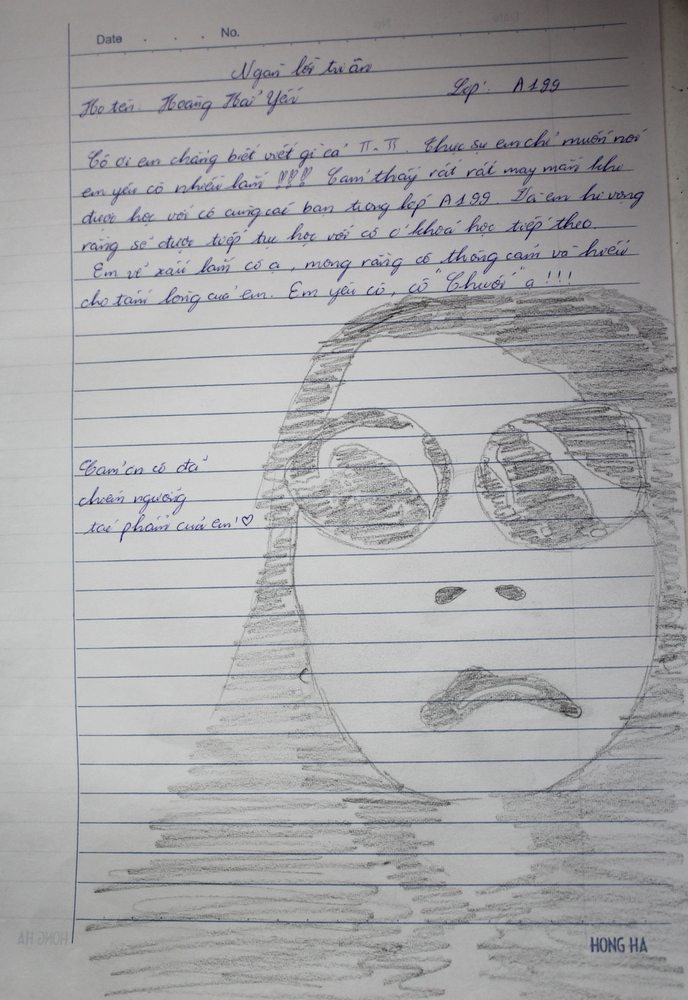 Date . . . No.
Ngàn lời tri ân
Họ tên: Hoàng Hải Yến Lớp: A199
Cô ơi em chẳng biết viết gì cả π.π. Thực sự em chỉ muốn nói
em yêu cô nhiều lắm !!! Cảm thấy rất rất may mắn khi
được học với cô cùng các bạn trong lớp A199. Và em hi vọng
rằng sẽ được tiếp tục học với cô ở khoá học tiếp theo.
Em vẽ xấu lắm cô ạ, mong rằng cô thông cảm và hiểu
cho tấm lòng của em. Em yêu cô, cô "Chuối" ạ !!!
Cảm ơn cô đã
chiêm ngưỡng
tác phẩm của em! ♡
HONG HA